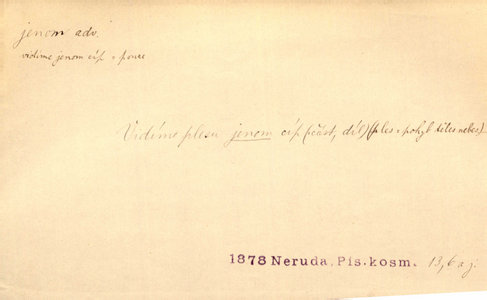 jenom adv.
vidíme jenom cíp = pouze
Vidíme plesu jenom cíp (část, díl) (ples = pohyb těles nebes.)
1878 Neruda, Pís. kosm. 13, 6 a j.